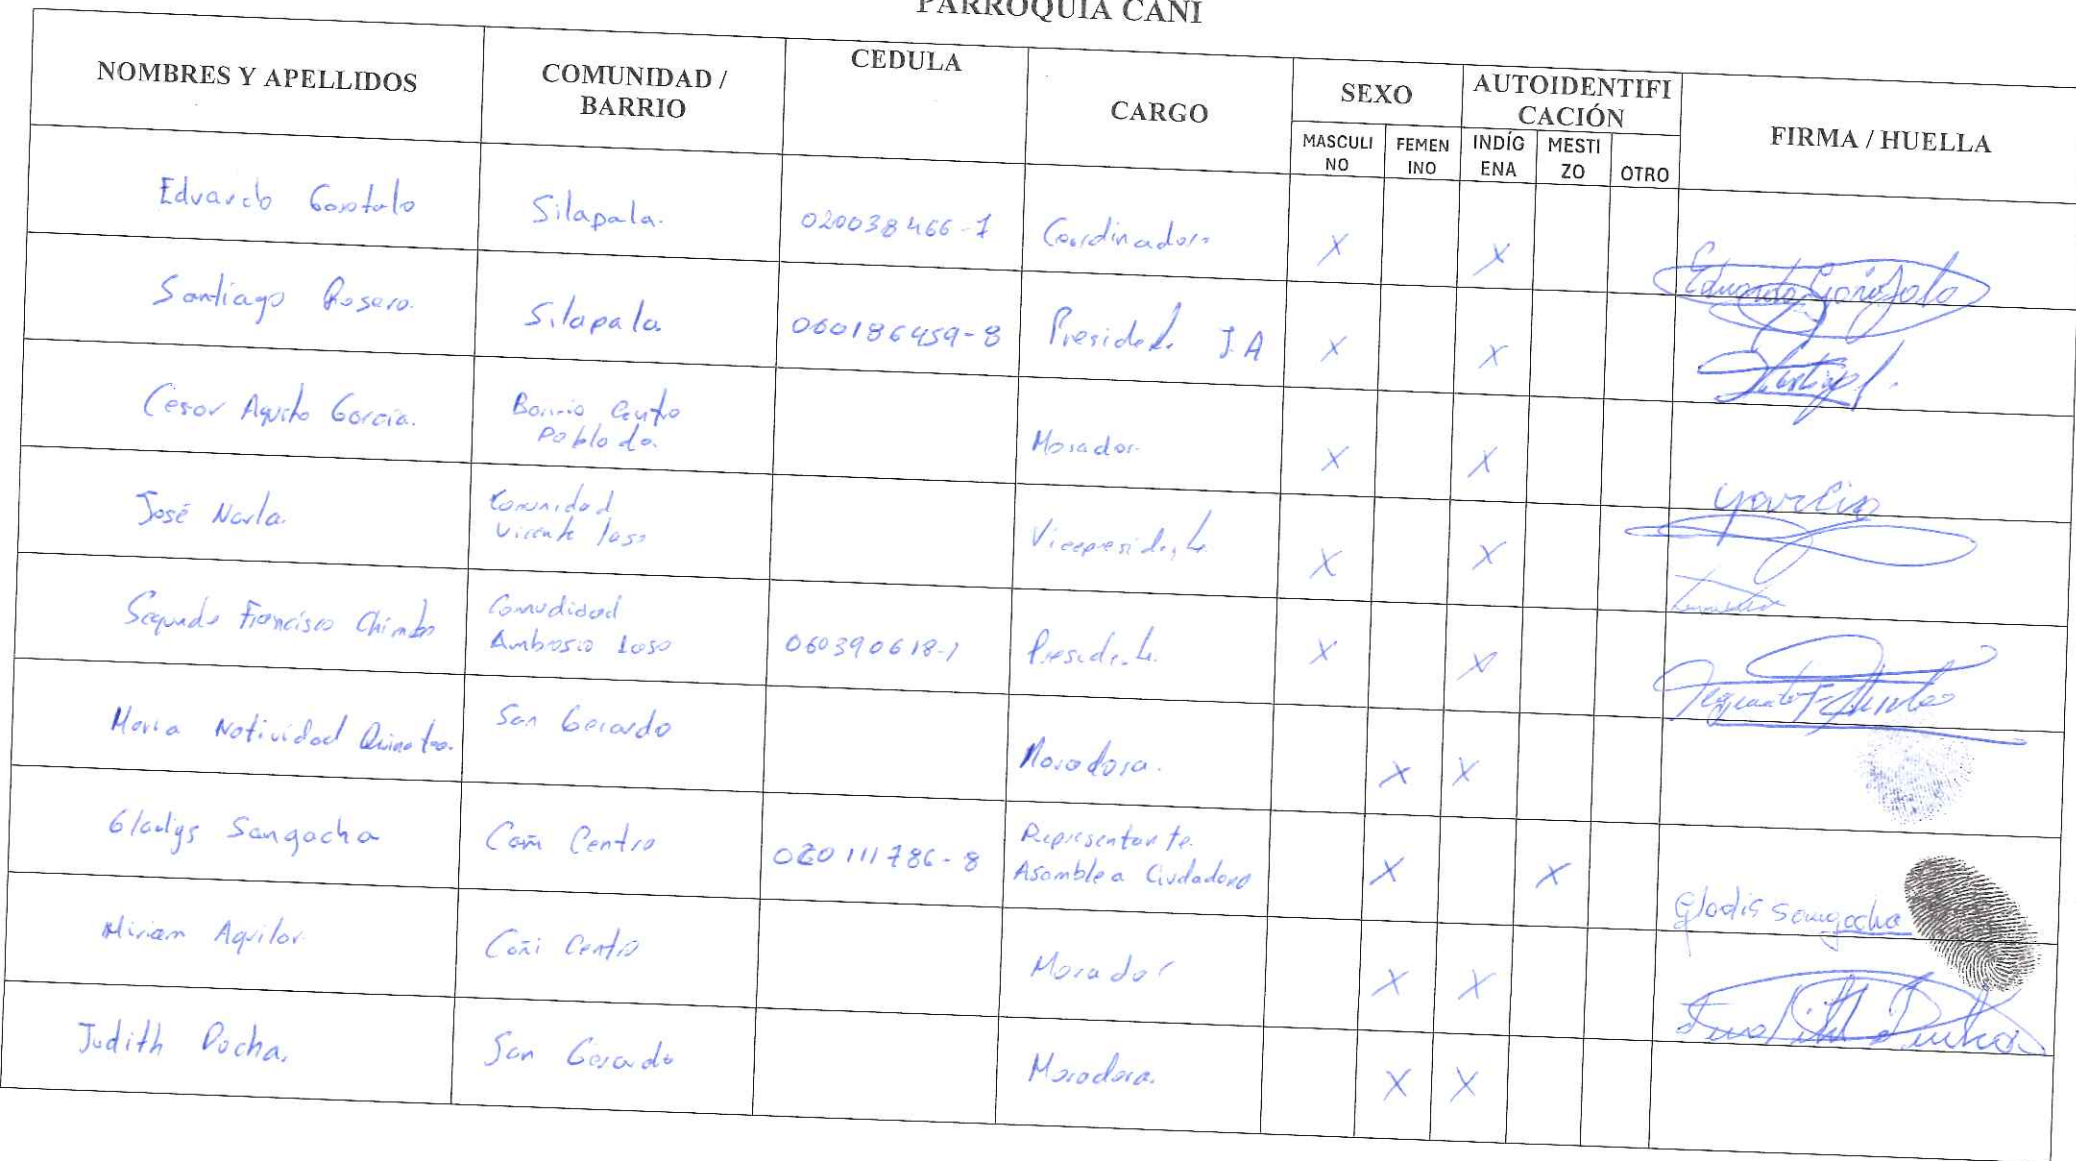 PARROQUIA CAÑI
NOMBRES Y APELLIDOS COMUNIDAD / BARRIO CEDULA CARGO SEXO AUTOIDENTIFI CACIÓN FIRMA / HUELLA
MASCULI NO FEMEN INO INDÍG ENA MESTI ZO OTRO
Eduardo Garofalo Silapala. 020038466-1 Coordinador X X Eduardo Garofalo
Santiago Rosero. Silapala 060186459-8 Presidente J.A X X
Cesar Agusto Garcia. Barrio Centro Poblado. Morador X X garcia
José Narla. Comunidad Vicente laso Vicepresidente X X
Segundo Francisco Chimbo Comudidad Ambrosio Laso 060390618-1 Presidente. X X
Maria Natividad San Gerardo Moradora. X X
Gladys Sangacha Cañi Centro 020111786-8 Representante. Asamblea Ciudadana X X Gladis Sangacha
Miriam Aguilar Cañi Centro Morador X X
Judith Pocha. San Gerardo Moradora. X X